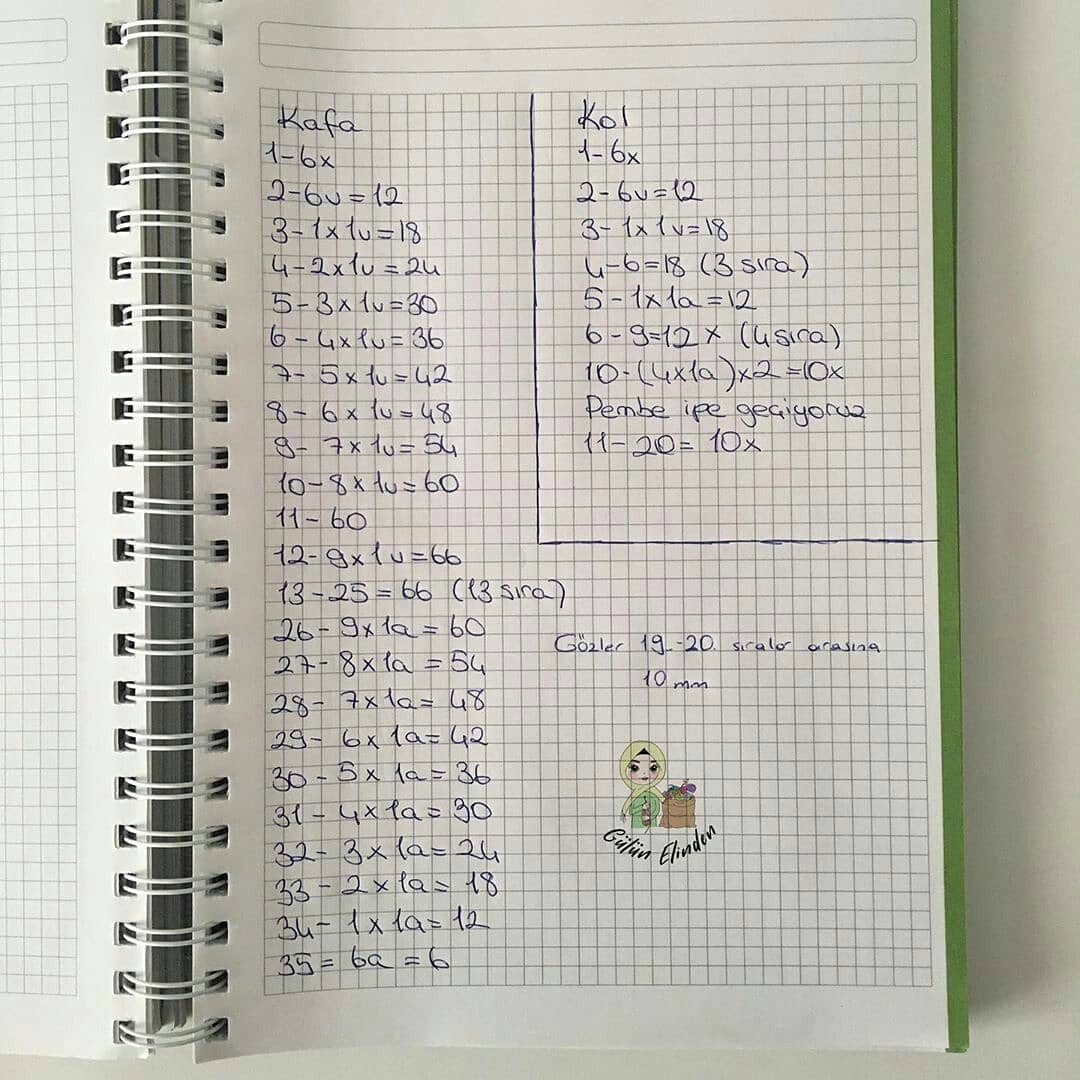 Kafa
1-6x
2-6v=12
3-1x1v=18
4-2x1v=24
5-3x1v=30
6-4x1v=36
7-5x1v=42
8-6x1v=48
9-7x1v=54
10-8x1v=60
11-60
12-9x1v=66
13-25=66 (13 sıra)
26-9x1a=60
27-8x1a=54
28-7x1a=48
29-6x1a=42
30-5x1a=36
31-4x1a=30
32-3x1a=24
33-2x1a=18
34-1x1a=12
35=6a=6
Kol
1-6x
2-6v=12
3-1x1v=18
4-6=18 (3 sıra)
5-1x1a=12
6-9=12x (4 sıra)
10-(4x1a)x2=10x
Pembe ipe geçiyoruz
11-20=10x
Gözler 19.-20. sıralar arasına
10 mm
Gülün Elinden